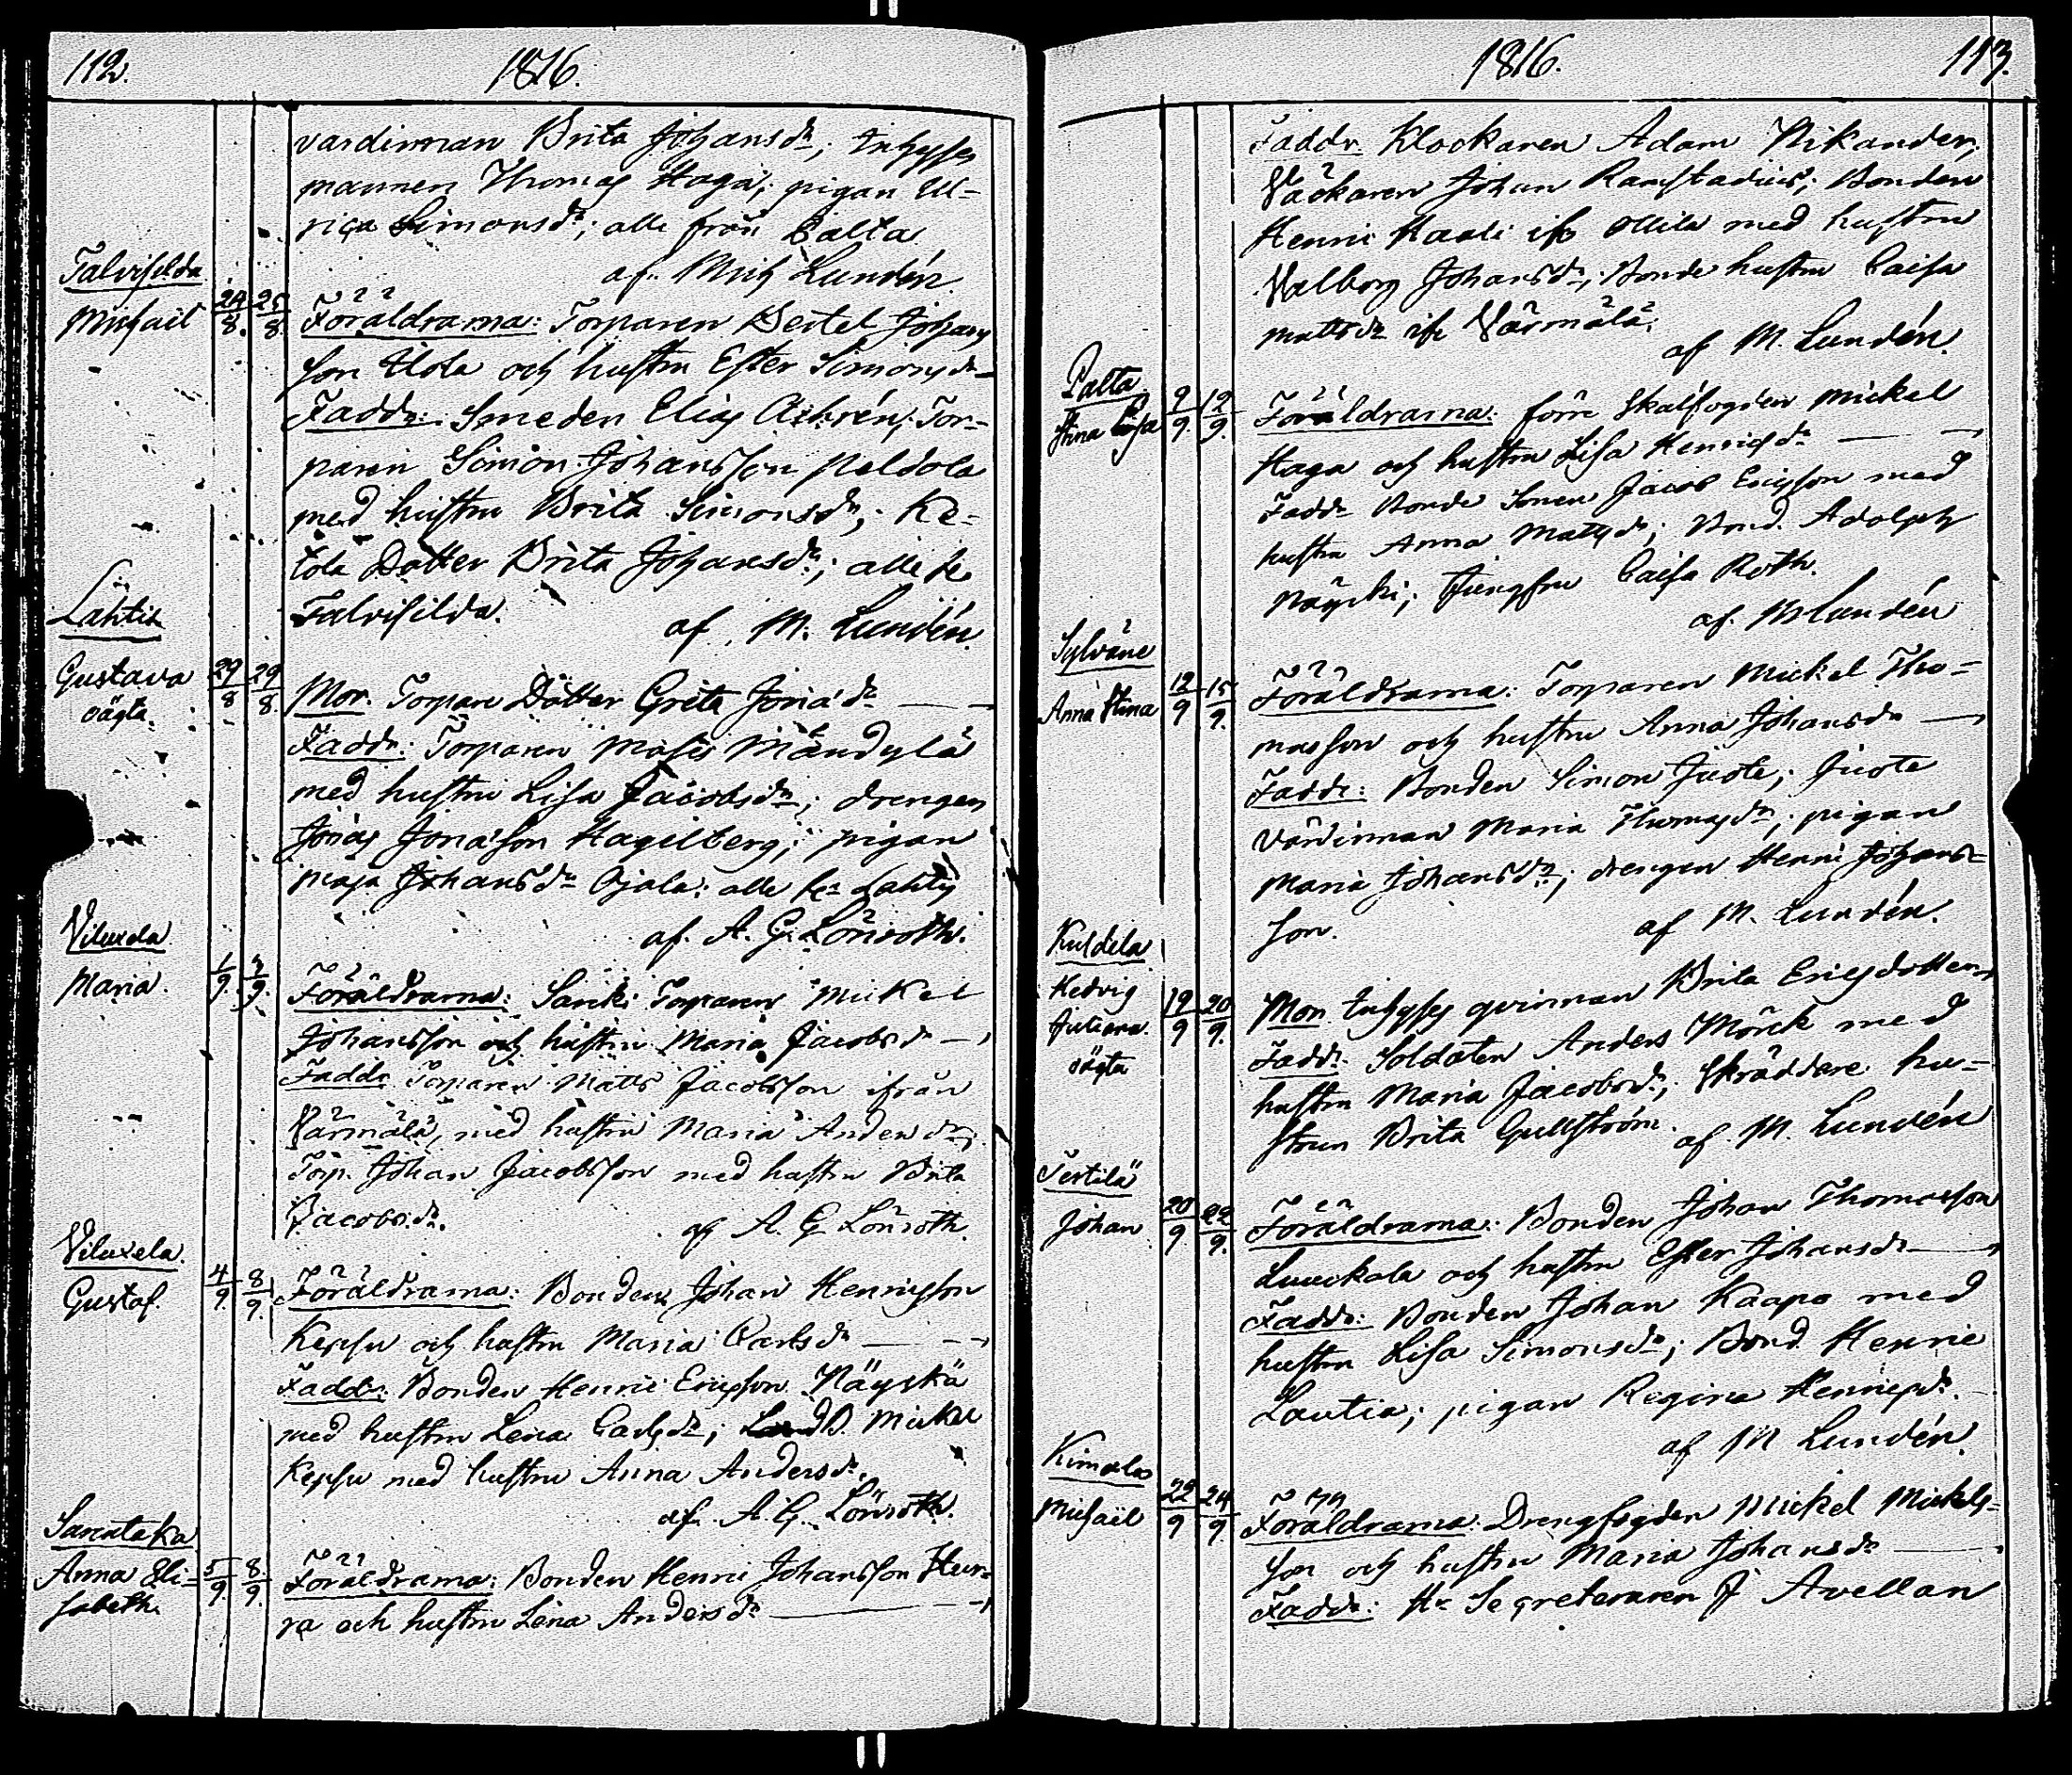 112.
1816.
vardinnan Brita Johansdr; Inhyses
mannen Thomas Haga; pigan Ul-
rica Simonsdr; alla från Palta
af. Mich Lundén.
Talvisilda
Michaël 24/8. 25/8. Föräldrarna: Torparen Bertel Johans
son Uola och hustru Ester Simonsdr
Faddr: Smeden Elias Achrén; Tor-
paren Simon Johansson Peldola
med hustru Brita Simonsdr; Ke-
tola Dotter Brita Johansdr; alla fr
Talvisilda.
af. M. Lundén.
Lahtis
Gustava 29/8 29/8. Mor. Torpare Dotter Greta Jonaedr
oägta.
Faddr: Torparen Moses Mändylä
med hustru Lisa Jacobsdr; drengen
Jonas Jonasson Hagelberg; pigan
Maja Johansdr Ojala: alla fr Lahtis
af. A. G. Lönroth.
Viluxela
Maria. 1/9. 3/9. Föräldrarna: Torparen Mickel
Johansson och hustru Maria Jacobsdr
Faddr Torparen Matts Jacobsson ifrån
Värmälä, med hustru Maria Andersdr;
Torp. Johan Jacobsson med hustru Brita
Jacobsdr.
af A. G Lönroth.
Viluxela.
Gustaf. 4/9. 8/9. Föräldrarna: Bonden Johan Henricsson
Kepsu och hustru Maria Carlsdr
Faddr: Bonden Henric Ericsson Näyskä
med hustru Lena Carlsdr; Mickel
Kepsu med hustru Anna Andersdr.
af. A. G. Lönroth.
Anna Eli- 5/9. 8/9. Föräldrarna: Bonden Henric Johansson Hur-
sabeth. ra och hustru Lena Andersdr
1816.
113.
Faddr. Klockaren Adam Nikander;
Johan Ramstadius; Bonden
Henric Kaali ifr Ollila med hustru
Valborg Johansdr; Bonde hustru Caisa
Mattsdr ifr Värmälä;
af M. Lundén.
Palta
Stina Caisa 9/9. 12/9. Föräldrarna: förre Skalfogden Mickel
Haga och hustru Lisa Henricsdr
Faddr Bonde Sonen Jacob Ericsson med
hustru Anna Mattsdr; Bond. Adolph
Näyski; Jungfru Caisa Roth.
af. M Lundén
Sylväne
Anna Stina 12/9 15/9. Föräldrarna: Torparen Mickel Tho-
masson och hustru Anna Johansdr
Faddr: Bonden Simon Juote; Juote
värdinnan Maria Thomasdr; pigan
Maria Johansdr; drengen Henric Johans-
son.
af M. Lundén.
Kuldela
Hedvig
Juliana 19/9 20/9. Mor Inhyses qvinnan Brita Ericsdotter
oägta
Faddr. Soldaten Anders Mörck med
hustru Maria Jacobsdr; Skräddare hu-
strun Brita Gullström.
af. M. Lundén
Tertilä
Johan 20/9 22/9. Föräldrarna: Bonden Johan Thomasson
Luuckala och hustru Ester Johansdr
Faddr: Bonden Johan Kaapo med
hustru Lisa Simonsdr; Bond Henric
Lautia; pigan Regina Henricsdr.
af M Lundén.
Kimalas
Michaël 22/9 24/9. Föräldrarna: Drengfogden Mickel Mickels-
son och hustru Maria Johansdr
Faddr: Hr Secreteraren J Avellan